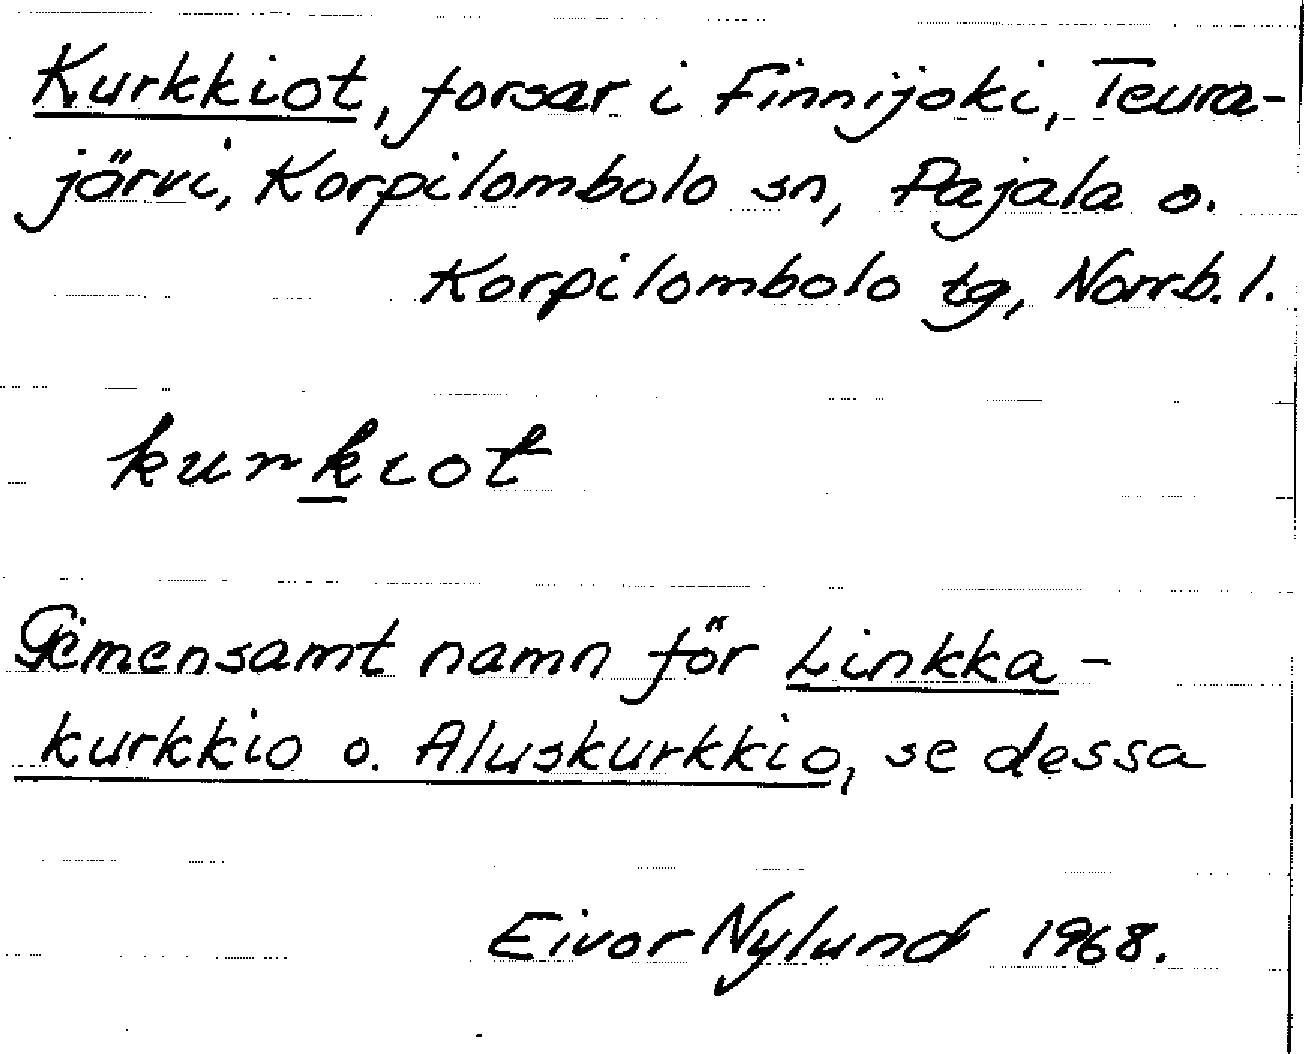 Kurkkiot, forsar i Finnijoki, Teura-
järvi, Korpilombolo sn, Pajala o.
Korpilombolo tg, Norrb. l.
kurkiot
Gemensamt namn för Linkka-
kurkkio o. Aluskurkkio, se dessa
Eivor Nylund 1968.